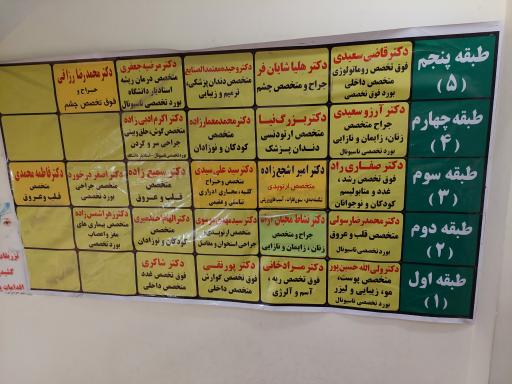 طبقه پنجم
(۵)
دکتر قاضی سعیدی
فوق تخصص روماتولوژی
متخصص داخلی
بورد فوق تخصصی
دکتر هلیا شایان فر
جراح و متخصص چشم
دکتر وحیده معتمدالصنایع
متخصص دندان پزشکی،
ترمیم و زیبایی
دکتر مرضیه جعفری
متخصص درمان ریشه
استادیار دانشگاه
بورد تخصصی ناسیونال
دکتر محمدرضا رزاقی
جراح و
فوق تخصص چشم
طبقه چهارم
(۴)
دکتر آرزو سعیدی
جراح متخصص
زنان، زایمان و نازایی
بورد تخصصی ناسیونال
دکتر بزرگ نیا
متخصص ارتودنسی
دندان پزشک
دکتر محمدمعمارزاده
متخصص
کودکان و نوزادان
دکتر اکرم ادبی زاده
متخصص گوش، حلق وبینی
جراحی سر و گردن
طبقه سوم
(۳)
دکتر صفاری راد
فوق تخصص رشد،
غدد و متابولیسم
کودکان و نوجوانان
دکتر امیر اشجع زاده
متخصص ارتوپدی
دکتر سید علی سیدی
متخصص و جراح
کلیه، مجاری ادراری
تناسلی و عقیمی
دکتر سمیع زاده
متخصص
قلب و عروق
دکتر اصغر درخورد
متخصص جراحی
بورد تخصصی
دکتر فاطمه محمدی
متخصص
قلب و عروق
طبقه دوم
(۲)
دکتر محمدرضا رسولی
متخصص قلب و عروق
بورد تخصصی ناسیونال
دکتر نشاط محبان
جراح و متخصص
زنان، زایمان و نازایی
متخصص ارتوپدی
جراحی استخوان و مفاصل
دکتر الهام
متخصص
کودکان و نوزادان
دکتر زهرا شمس زاده
متخصص بیماری های
مغز و اعصاب
بورد تخصصی
طبقه اول
(۱)
دکتر ولی الله حسین پور
متخصص پوست،
مو، زیبایی و لیزر
بورد تخصصی ناسیونال
دکتر مرادخانی
فوق تخصص ریه،
آسم و آلرژی
دکتر پورتقی
فوق تخصص گوارش
متخصص داخلی
دکتر شاکری
فوق تخصص غدد
متخصص داخلی